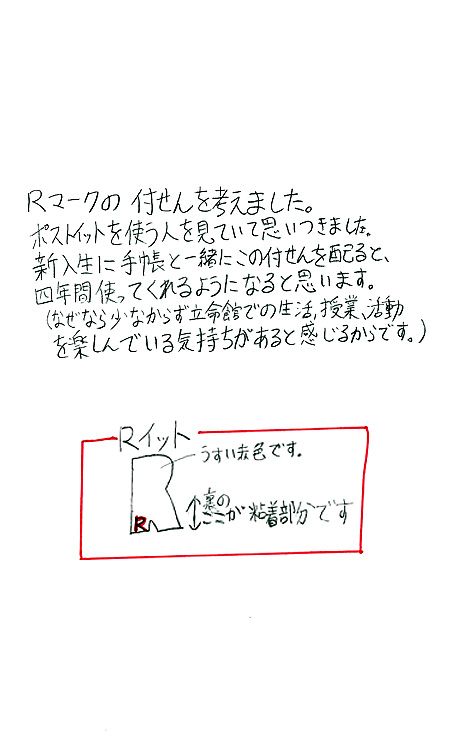 Rマークの付せんを考えました。
ポストイットを使う人を見ていて思いつきました。
新入生に手帳と一緒にこの付せんを配ると、
四年間使ってくれるようになると思います。
(なぜなら少なからず立命館での生活,授業、活動
を楽しんでいる気持ちがあると感じるからです。)
Rイット
うすい赤色です。
R
裏の
ここが粘着部分です